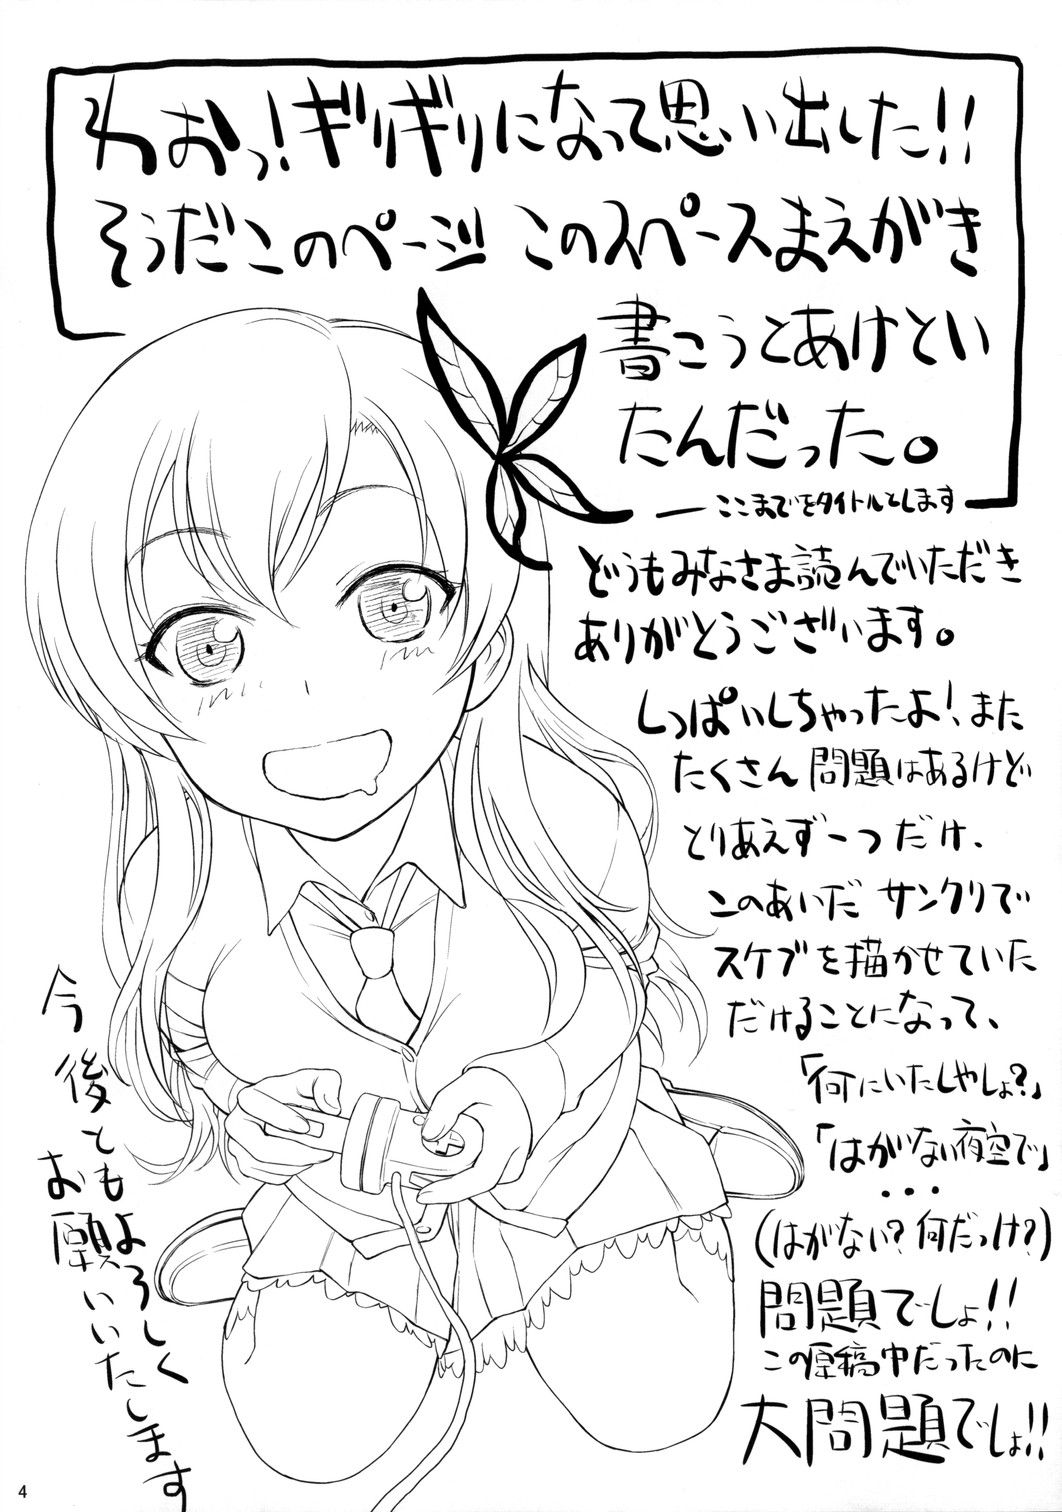 わおっ!ギリギリになって思い出した!!
そうだこのページ このスペースまえがき
書こうとあけとい
たんだった。
ーここまでをタイトルとしますー
どうもみなさま読んでいただき
ありがとうございます。
しっぱいしちゃったよ!、また
たくさん問題はあるけど
とりあえず一つだけ、
このあいだ サンクリで
スケブを描かせていた
だけることになって、
「何にいたしやしょ?」
「はがない夜空で」
・・・
(はがない?何だっけ?)
問題でしょ!!
この原稿中だったのに
大問題でしょ!!
今後ともよろしく
お願いいたします
4